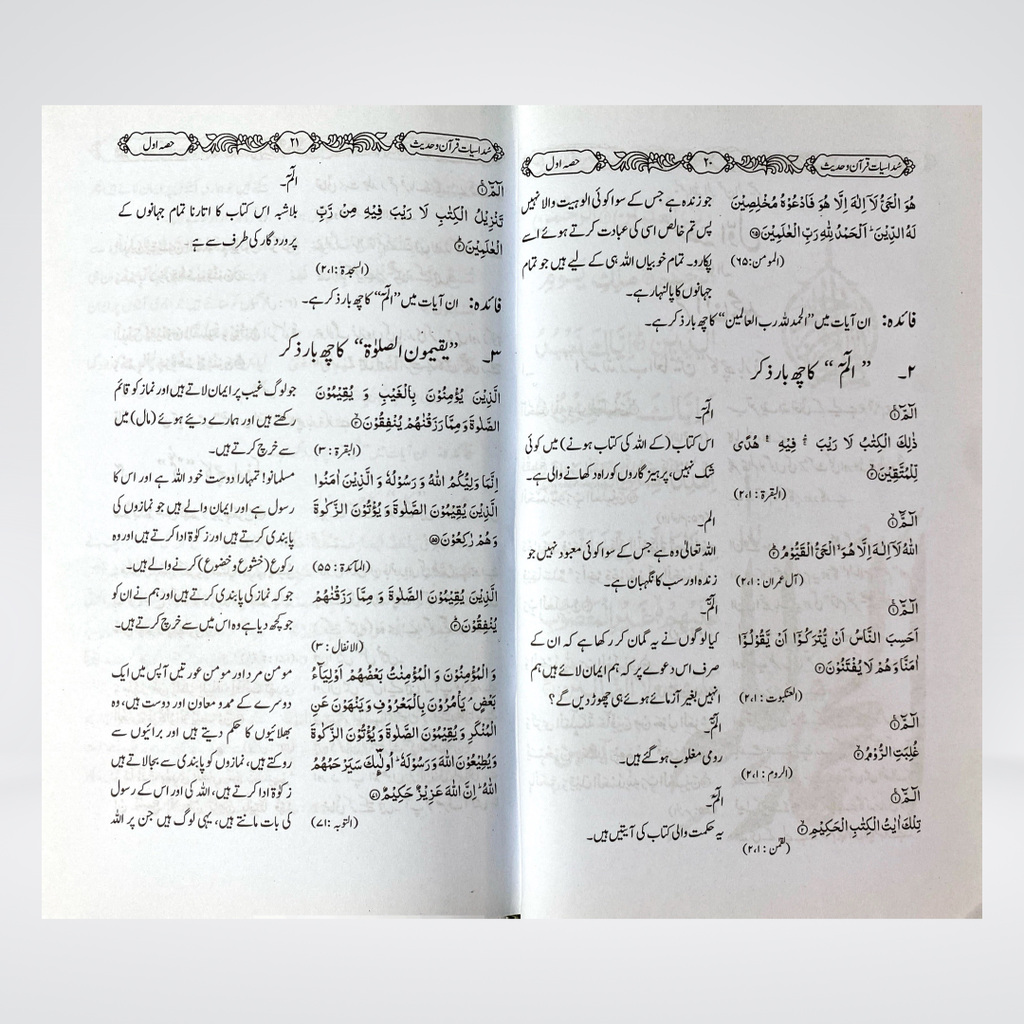 سُداسیات قرآن و حدیث ۲۰ حصہ اول
هُوَ الْحَىُّ لَآ اِلٰهَ اِلَّا هُوَ فَادْعُوْهُ مُخْلِصِيْنَ
لَهُ الدِّيْنَ ۭ اَلْحَمْدُ لِلّٰهِ رَبِّ الْعٰلَمِيْنَ ۶۵
(المومن: ۶۵)
جو زندہ ہے جس کے سوا کوئی الوہیت والا نہیں
پس تم خالص اسی کی عبادت کرتے ہوئے اسے
پکارو۔ تمام خوبیاں اللہ ہی کے لیے ہیں جو تمام
جہانوں کا پالنہار ہے۔
فائدہ: ان آیات میں ”الحمد للہ رب العالمین“ کا چھ بار ذکر ہے۔
۲۔ ”الٓمّٓ“ کا چھ بار ذکر
الٓمّٓ ۱
ذٰلِكَ الْكِتٰبُ لَا رَيْبَ ۛ فِيْهِ ۛ هُدًى
لِّلْمُتَّقِيْنَ ۲
(البقرۃ: ۲،۱)
الٓمّٓ۔
اس کتاب (کے اللہ کی کتاب ہونے) میں کوئی
شک نہیں، پرہیزگاروں کو راہ دکھانے والی ہے۔
الٓمّٓ ۱
اللّٰهُ لَآ اِلٰهَ اِلَّا هُوَ ۙ الْحَىُّ الْقَيُّوْمُ ۲
(آل عمران: ۲،۱)
الم۔
اللہ تعالیٰ وہ ہے جس کے سوا کوئی معبود نہیں جو
زندہ اور سب کا نگہبان ہے۔
الٓمّٓ ۱
اَحَسِبَ النَّاسُ اَنْ يُّتْرَكُوْٓا اَنْ يَّقُوْلُوْٓا
اٰمَنَّا وَهُمْ لَا يُفْتَنُوْنَ ۲
(العنکبوت: ۲،۱)
الٓمّٓ۔
کیا لوگوں نے یہ گمان کر رکھا ہے کہ ان کے
صرف اس دعوے پر کہ ہم ایمان لائے ہیں ہم
انہیں بغیر آزمائے ہوئے ہی چھوڑ دیں گے؟
الٓمّٓ ۱
غُلِبَتِ الرُّوْمُ ۲
(الروم: ۲،۱)
الٓمّٓ۔
رومی مغلوب ہو گئے ہیں۔
الٓمّٓ ۱
تِلْكَ اٰيٰتُ الْكِتٰبِ الْحَكِيْمِ ۲
(لقمٰن: ۲،۱)
الٓمّٓ۔
یہ حکمت والی کتاب کی آیتیں ہیں۔
سُداسیات قرآن و حدیث ۲۱ حصہ اول
الٓمّٓ ۱
تَنْزِيْلُ الْكِتٰبِ لَا رَيْبَ فِيْهِ مِنْ رَّبِّ
الْعٰلَمِيْنَ ۲
(السجدۃ: ۲،۱)
الٓمّٓ۔
بلاشبہ اس کتاب کا اتارنا تمام جہانوں کے
پروردگار کی طرف سے ہے
فائدہ: ان آیات میں ”الٓمّٓ“ کا چھ بار ذکر ہے۔
۳۔ ”یقیمون الصلوٰۃ“ کا چھ بار ذکر
الَّذِيْنَ يُؤْمِنُوْنَ بِالْغَيْبِ وَ يُقِيْمُوْنَ
الصَّلٰوةَ وَ مِمَّا رَزَقْنٰهُمْ يُنْفِقُوْنَ ۳
(البقرۃ: ۳)
جو لوگ غیب پر ایمان لاتے ہیں اور نماز کو قائم
رکھتے ہیں اور ہمارے دیئے ہوئے (مال) میں
سے خرچ کرتے ہیں۔
اِنَّمَا وَلِيُّكُمُ اللّٰهُ وَ رَسُوْلُهٗ وَ الَّذِيْنَ اٰمَنُوا
الَّذِيْنَ يُقِيْمُوْنَ الصَّلٰوةَ وَ يُؤْتُوْنَ الزَّكٰوةَ
وَ هُمْ رٰكِعُوْنَ ۵۵
(المائدۃ: ۵۵)
مسلمانو! تمہارا دوست خود اللہ ہے اور اس کا
رسول ہے اور ایمان والے ہیں جو نمازوں کی
پابندی کرتے ہیں اور زکوٰۃ ادا کرتے ہیں اور وہ
رکوع (خشوع و خضوع) کرنے والے ہیں۔
الَّذِيْنَ يُقِيْمُوْنَ الصَّلٰوةَ وَ مِمَّا رَزَقْنٰهُمْ
يُنْفِقُوْنَ ۳
(الانفال: ۳)
جو کہ نماز کی پابندی کرتے ہیں اور ہم نے ان کو
جو کچھ دیا ہے وہ اس میں سے خرچ کرتے ہیں۔
وَ الْمُؤْمِنُوْنَ وَ الْمُؤْمِنٰتُ بَعْضُهُمْ اَوْلِيَآءُ
بَعْضٍ ۘ يَاْمُرُوْنَ بِالْمَعْرُوْفِ وَ يَنْهَوْنَ عَنِ
الْمُنْكَرِ وَ يُقِيْمُوْنَ الصَّلٰوةَ وَ يُؤْتُوْنَ الزَّكٰوةَ
وَ يُطِيْعُوْنَ اللّٰهَ وَ رَسُوْلَهٗ ۭ اُولٰٓئِكَ سَيَرْحَمُهُمُ
اللّٰهُ ۭ اِنَّ اللّٰهَ عَزِيْزٌ حَكِيْمٌ ۷۱
(التوبہ: ۷۱)
مومن مرد اور مومن عورتیں آپس میں ایک
دوسرے کے ممدو معاون اور دوست ہیں، وہ
بھلائیوں کا حکم دیتے ہیں اور برائیوں سے
روکتے ہیں، نمازوں کو پابندی سے بجا لاتے ہیں
زکوٰۃ ادا کرتے ہیں، اللہ کی اور اس کے رسول
کی بات مانتے ہیں، یہی لوگ ہیں جن پر اللہ